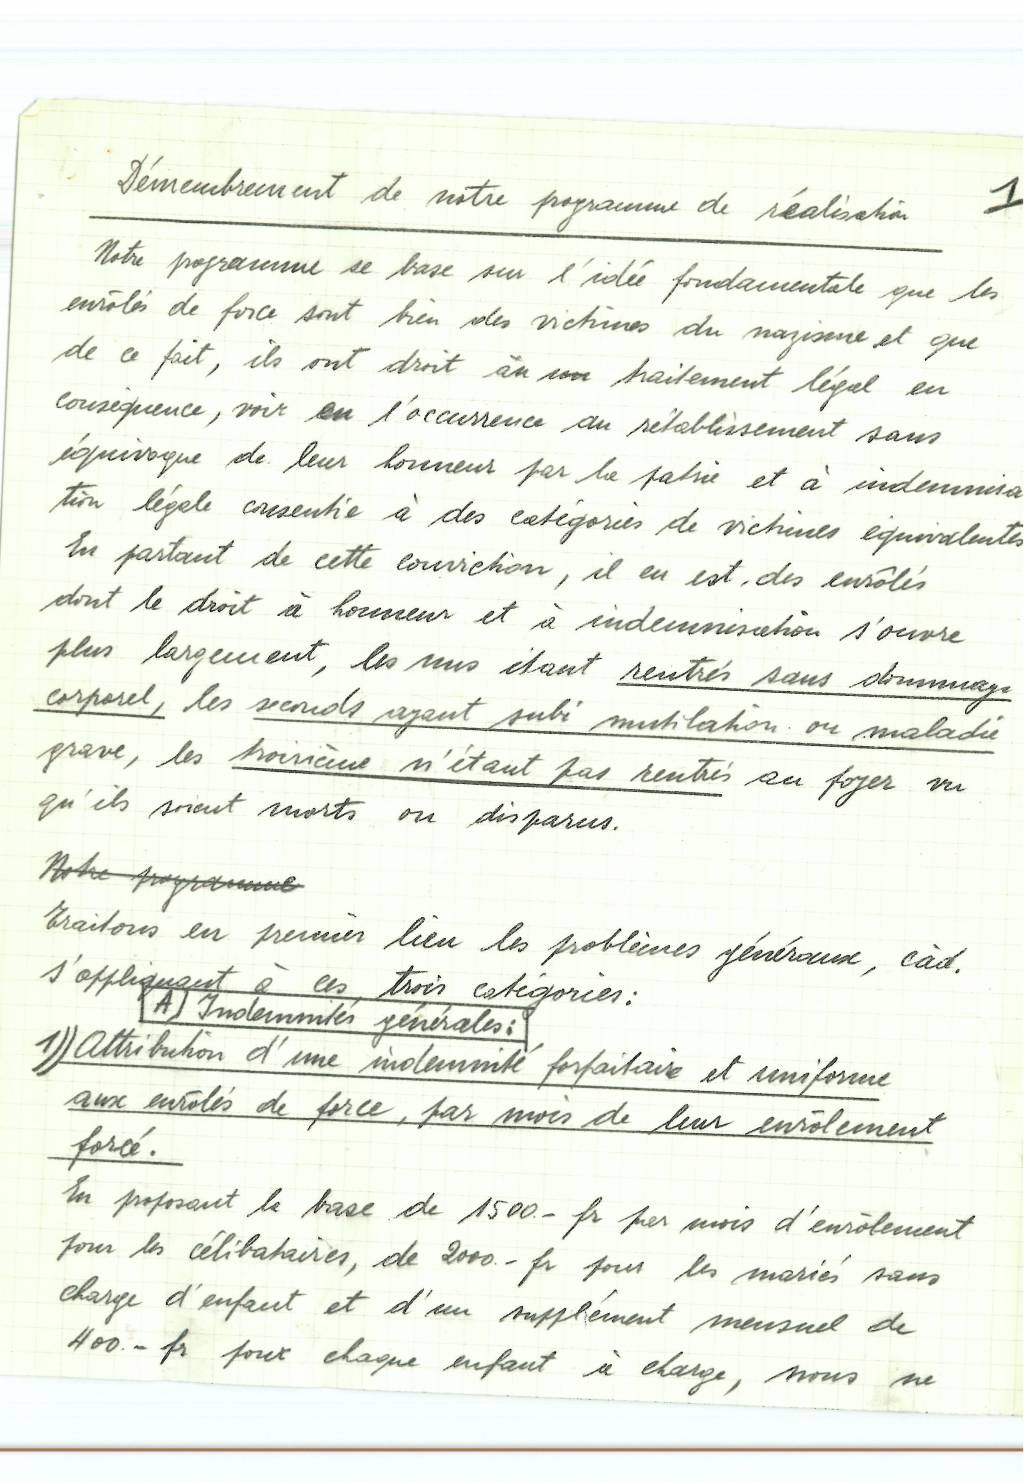 Démembrement de notre programme de réalisation
1
Notre programme se base sur l'idée fondamentale que les
enrôlés de force sont bien des victimes du nazisme et que
de ce fait, ils ont droit à un traitement légal en
conséquence, voir en l'occurrence au rétablissement sans
équivoque de leur honneur par la patrie et à indemnisa
tion légale consentie à des catégories de victimes équivalentes
En partant de cette conviction, il en est des enrôlés
dont le droit à honneur et à indemnisation s'ouvre
plus largement, les uns étant rentrés sans dommage
corporel, les seconds ayant subi mutilation ou maladie
grave, les troisième n'étant pas rentrés au foyer vu
qu'ils soient morts ou disparus.
Notre programme
Traitons en premier lieu les problèmes généraux, càd.
s'appliquant à ces trois catégories:
A) Indemnités générales:
1)) Attribution d'une indemnité forfaitaire et uniforme
aux enrôlés de force, par mois de leur enrôlement
forcé.
En proposant la base de 1500.- fr par mois d'enrôlement
pour les célibataires, de 2000.- fr pour les mariés sans
charge d'enfant et d'un supplément mensuel de
400.- fr pour chaque enfant à charge, nous ne